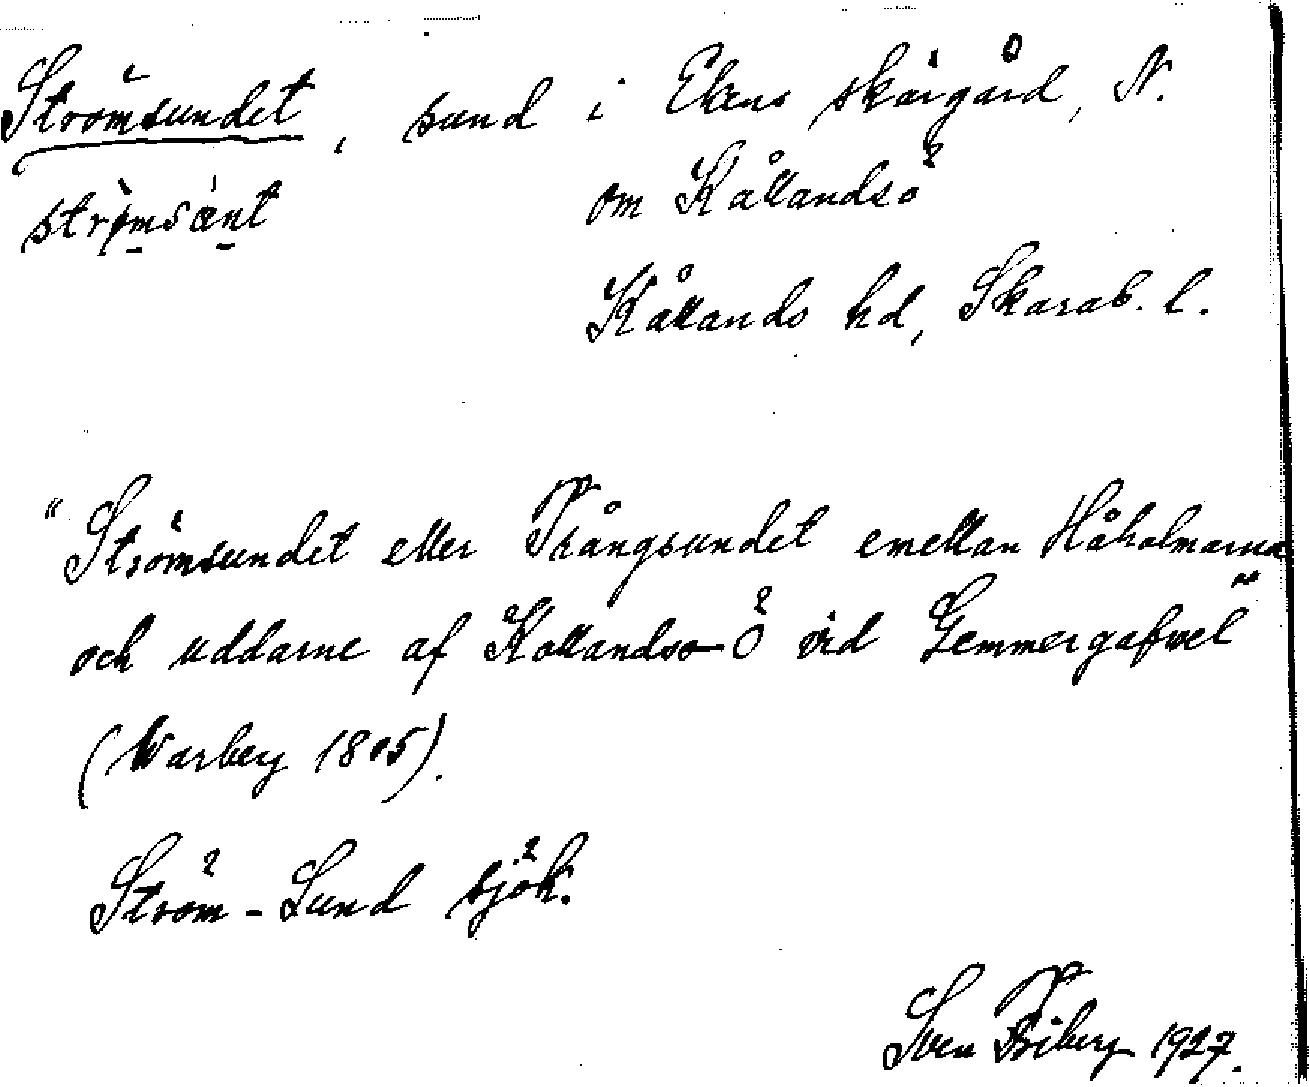 Strömsundet, sund i Ekens skärgård, N.
strømsænt om Kållandsö
Kållands hd, Skarab. l.
"Strömsundet eller Trångsundet emellan Håholmarna
och uddarne af Kollandsö Ö vid Gemmergafvel"
(Warberg 1805).
Ström-Sund sjök.
Sven Friberg 1927.